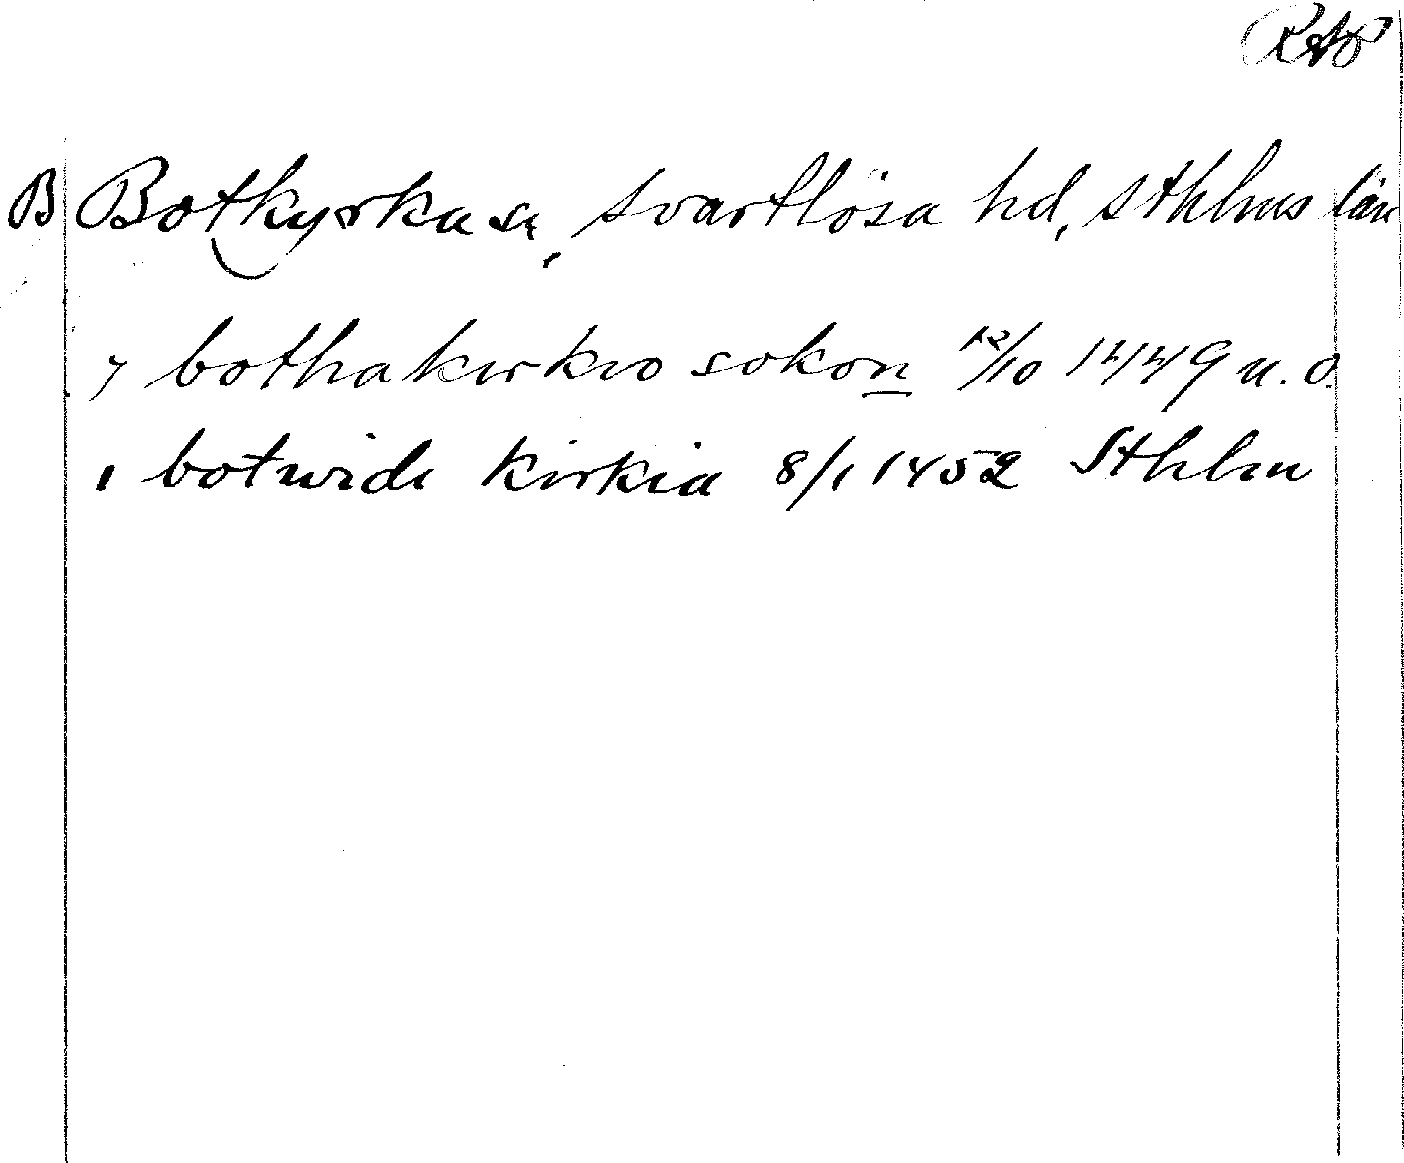 RAP
B Botkyrka sn, Svartlösa hd, Sthlms län
y bothakirkio sokon 12/10 1449 u. o.
i botwide kirkia 8/1 1452 Sthlm